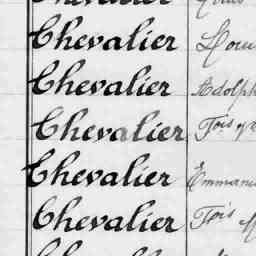 Chevalier
Chevalier Louis
Chevalier Adolph
Chevalier Fois
Chevalier Emmanu
Chevalier Fois